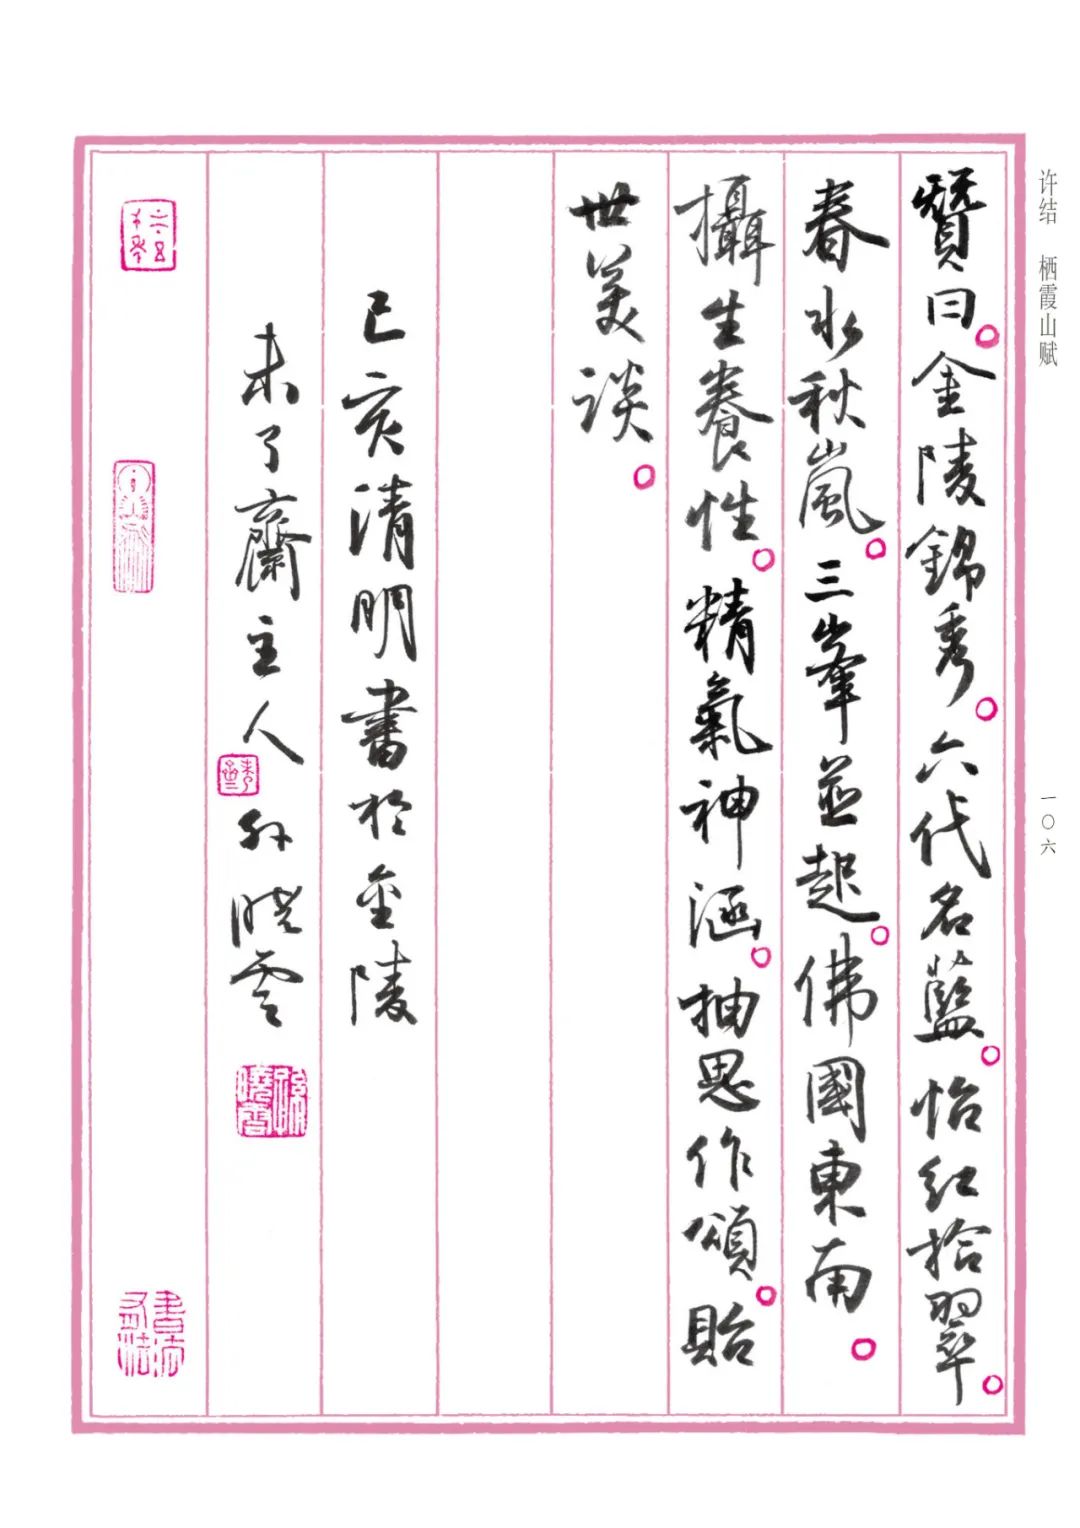 许结 栖霞山赋
一〇六
贊曰。金陵錦秀。六代名藍。怡紅拾翠。
春水秋嵐。三峯並起。佛國東南。
攝生養性。精氣神涵。抽思作頌。貽
世美談。
己亥清明書於金陵
未了齋主人 孙晓雲
孫曉雲